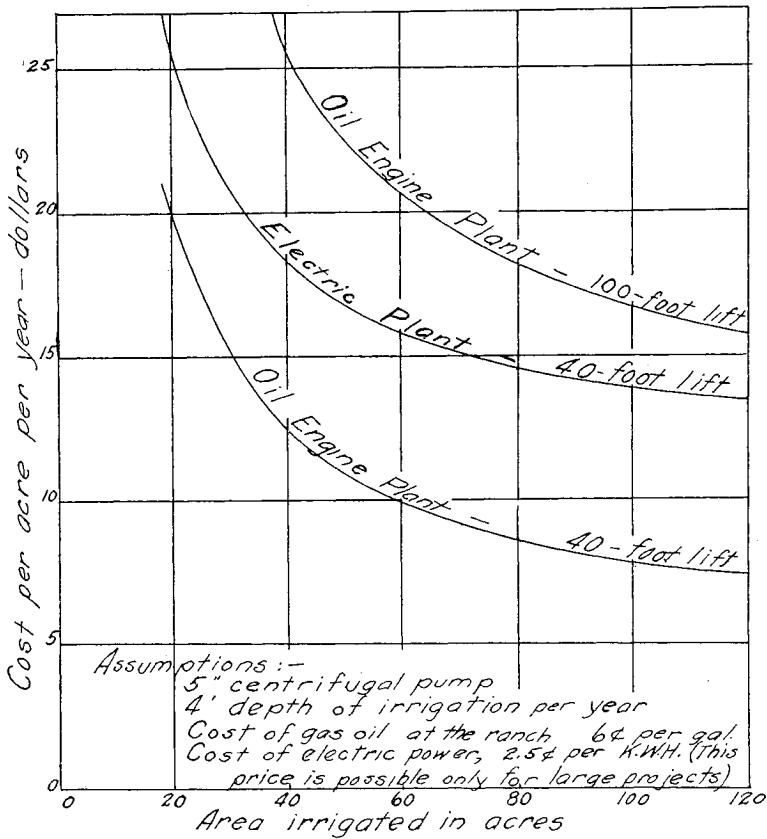 25
20
15
10
5
0
Cost per acre per year — dollars
Oil Engine Plant — 100-foot lift
Electric Plant — 40-foot lift
Oil Engine Plant — 40-foot lift
Assumptions :-
5" centrifugal pump
4' depth of irrigation per year
Cost of gas oil at the ranch 6¢ per gal.
Cost of electric power, 2.5¢ per K.W.H. (This
price is possible only for large projects)
0 20 40 60 80 100 120
Area irrigated in acres